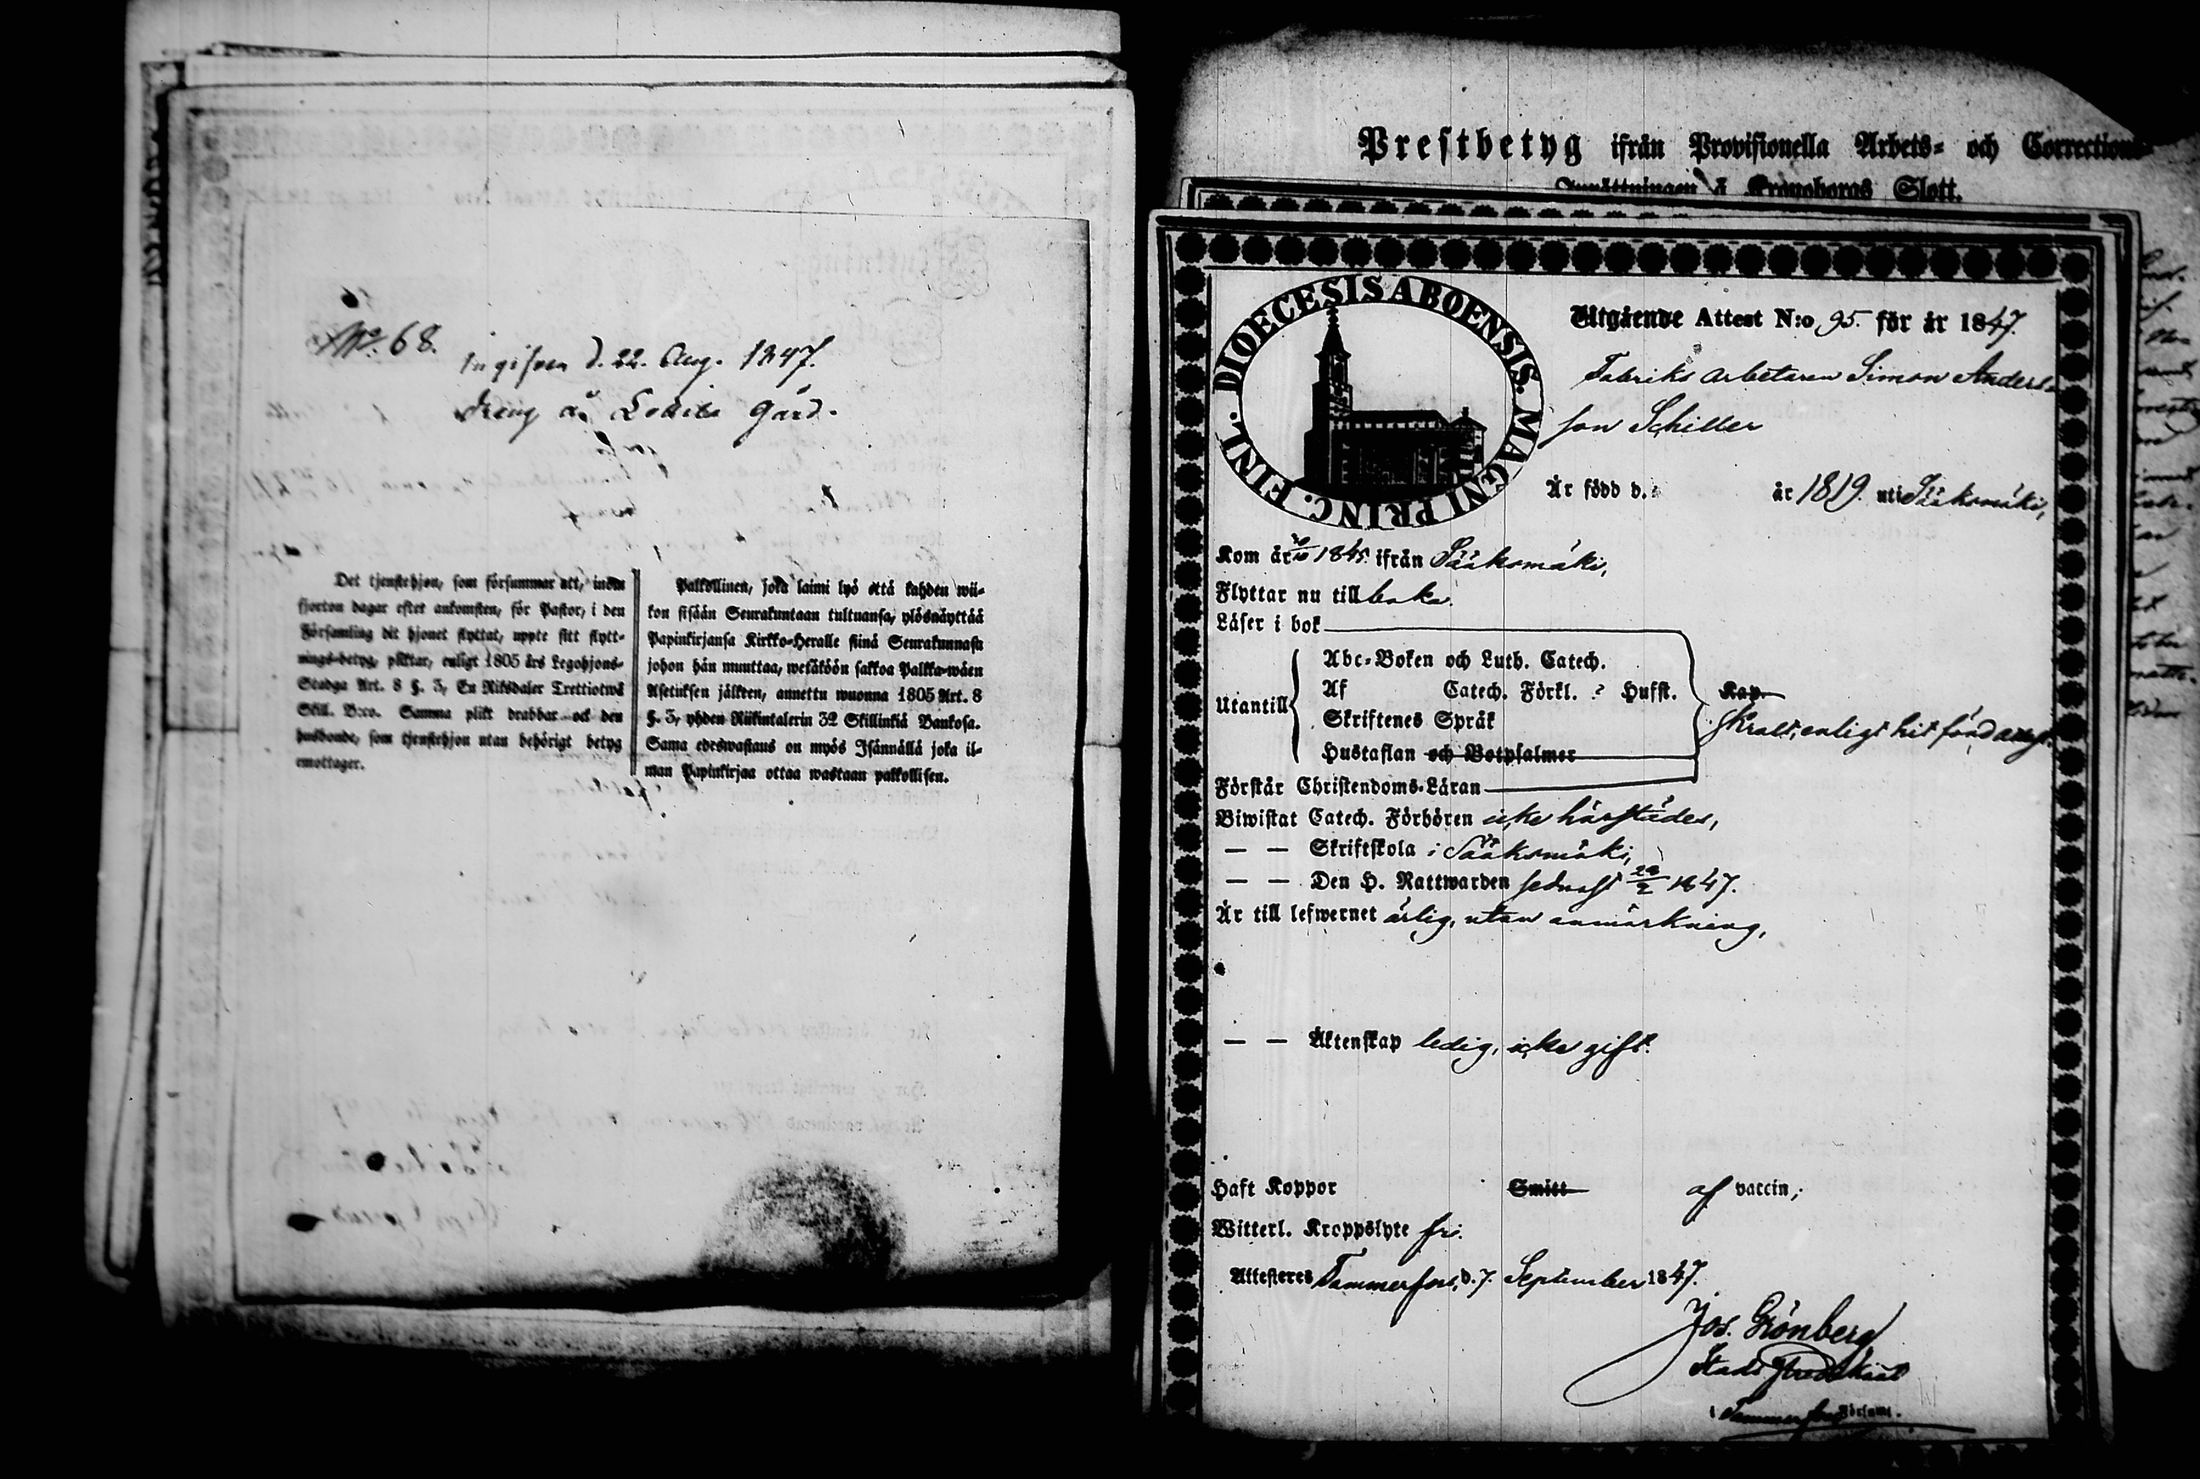 No. 68.
ingifven d. 22. Aug. 1847.
dräng å Lahis Gård.
Det tjenstehjon, som försummar att, inom
fjorton dagar efter ankomsten, för Pastor, i den
Församling dit hjonet flyttat, uppte sitt flytt-
nings-betyg, pliktar, enligt 1805 års Legohjons-
Stadga Art. 8 §. 3, En Riksdaler Trettiotwå
Skill. B:co. Samma plikt drabbar ock den
husbonde, som tjenstehjon utan behörigt betyg
emottager.
Palkollinen, joka laimi lyö että kahden wii-
kon sisään Seurakuntaan tultuansa, ylösnäyttää
Papinkirjansa Kirkko-Heralle siinä Seurakunnasa
johon hän muuttaa, wetäköön sakkoa Palkka-wäen
Asetuksen jälkeen, annettu wuonna 1805 Art. 8
§. 3, yhden Riikintalerin 32 Skillinkiä Bankosa.
Sama edeswastaus on myös Isännällä joka il-
man Papinkirjaa ottaa wastaan palkollisen.
Prestbetyg ifrån Provisionella Arbets- och Corrections-
Inrättningen å Kronoborgs Slott.
DIOECESIS ABOENSIS. MAGNI PRINC. FINL.
Utgående Attest N:o 95. för år 1847.
Fabriks arbetaren Simon Anders-
son Schiller
Är född d. år 1819. uti Sääksmäki,
Kom år 1845. ifrån Sääksmäki,
Flyttar nu tillbaka.
Läser i bok
Abc-Boken och Luth. Catech.
Af Catech. Förkl. ? Hufst.
Utantill
Skriftenes Språk
Hustaflan och Botpsalmer
Kap
enligt hit förd
Förstår Christendoms-Läran
Biwistat Catech. Förhören icke härstädes,
— — Skriftskola i Sääksmäki,
— — Den H. Nattwarden sednast 28/2 1847.
Är till lefwernet ärlig, utan anmärkning,
— — Äktenskap ledig, icke gift.
Haft Koppor Smitt af vaccin,
Witterl. Kroppslyte fri.
Attesteres Tammerfors, d. 7. September 1847.
Jos. Grönberg
Stads
i Tammerfors Församl.